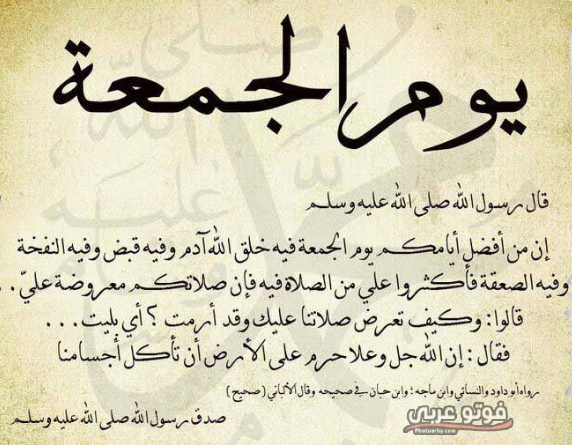 يوم الجمعة
قال رسول الله صلى الله عليه وسلم
إن من أفضل أيامكم يوم الجمعة فيه خلق الله آدم وفيه قبض وفيه النفخة
وفيه الصعقة فأكثروا علي من الصلاة فيه فإن صلاتكم معروضة عليّ . .
قالوا : وكيف تعرض صلاتنا عليك وقد أرمت ؟ أي بليت . . .
فقال : إن الله جل وعلا حرم على الأرض أن تأكل أجسامنا
رواه أبو داود والنسائي وابن ماجه ؛ وابن حبان في صحيحه وقال الألباني ( صحيح )
صدق رسول الله صلى الله عليه وسلم
فوتو عربي
Photoarby.com